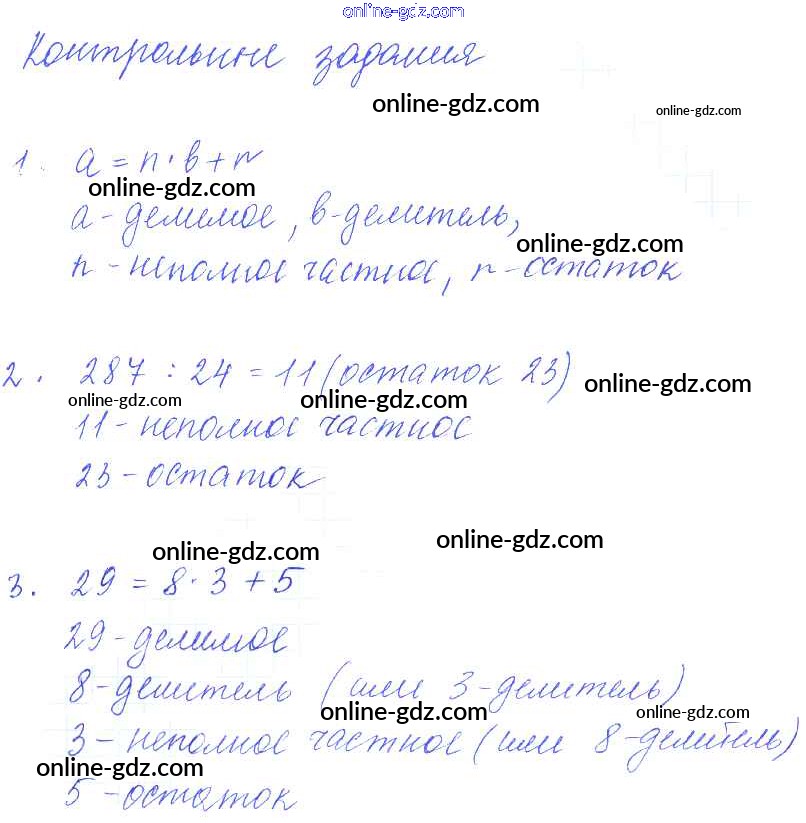 online-gdz.com
Контрольные задания
online-gdz.com
online-gdz.com
1. a = n · b + r
online-gdz.com
a - делимое, b - делитель,
online-gdz.com
n - неполное частное, r - остаток
2. 287 : 24 = 11 (остаток 23)
online-gdz.com
online-gdz.com
online-gdz.com
11 - неполное частное
23 - остаток
online-gdz.com
online-gdz.com
3. 29 = 8 · 3 + 5
29 - делимое
8 - делитель (или 3 - делитель)
online-gdz.com
online-gdz.com
3 - неполное частное (или 8 - делитель)
online-gdz.com
5 - остаток